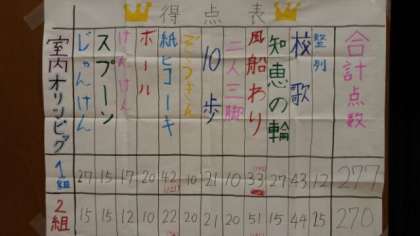 得点表
室内オリンピック じゃんけん スプーン けんけん ボール 紙ヒコーキ ぞうきん 10歩 二人三脚 風船わり 知恵の輪 校歌 整列 合計点数
1組 27 15 17 20 42 10 21 10 33 27 43 12 277
2組 15 15 12 10 22 20 21 20 51 15 44 25 270